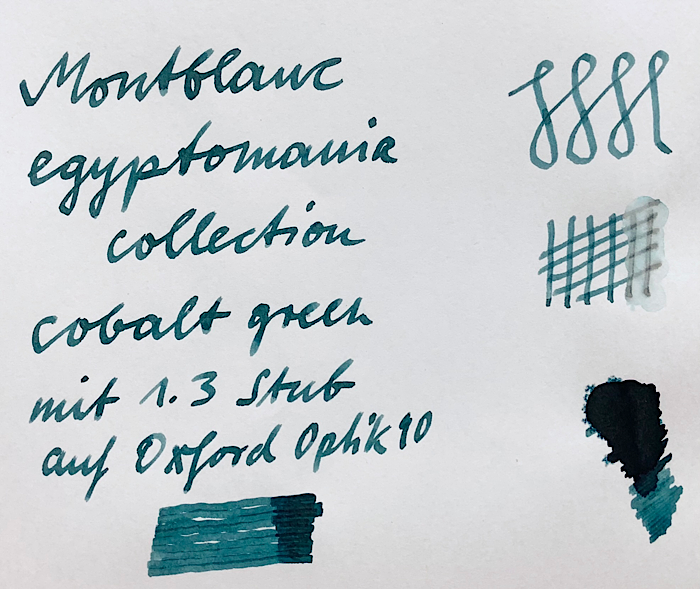 Montblanc
egyptomania
collection
cobalt green
mit 1.3 Stub
auf Oxford Optik 90